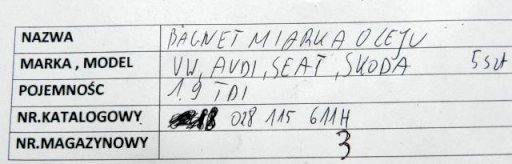 NAZWA BAGNET MIARKA OLEJU
MARKA , MODEL VW, AUDI, SEAT, SKODA 5 szt
POJEMNOŚĆ 1.9 TDI
NR.KATALOGOWY 028 115 611H
NR.MAGAZYNOWY 3